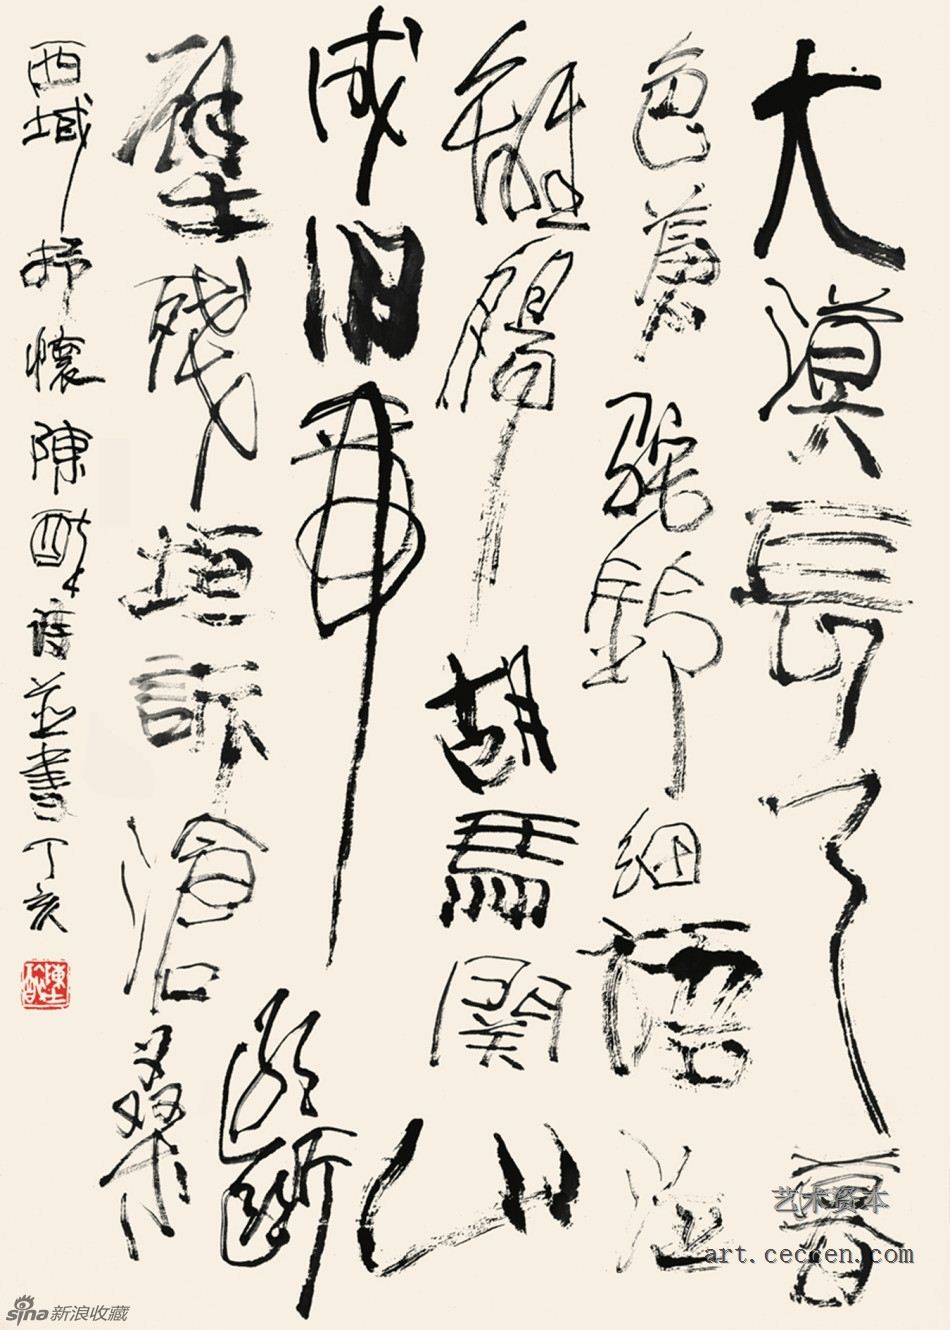 大漠長河暮
色蒼駝鈴細語注
離腸胡馬關山
成旧事斷
壁残垣訴滄桑
西域抒懷 陳醉詩並書 丁亥
陳醉
艺术资本
art.ceccen.com
sina新浪收藏